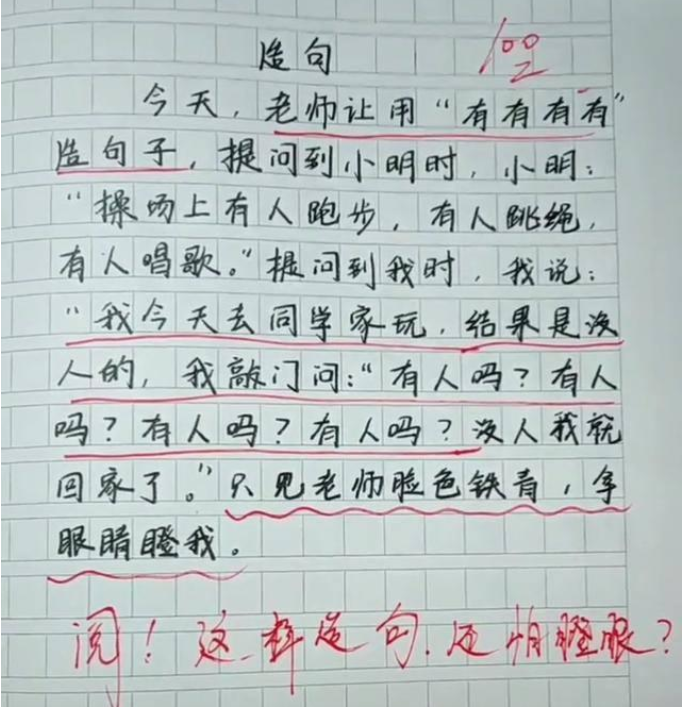 造句 100
今天，老师让用“有有有有”
造句子，提问到小明时，小明：
“操场上有人跑步，有人跳绳，
有人唱歌。”提问到我时，我说：
“我今天去同学家玩，结果是没
人的，我敲门问：“有人吗？有人
吗？有人吗？有人吗？没人我就
回家了。”只见老师脸色铁青，拿
眼睛瞪我。
阅！这样造句，还怕瞪眼？